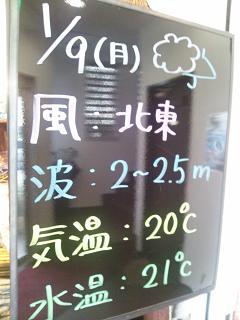 1/9(月)
風:北東
波:2~2.5m
気温:20℃
水温:21℃